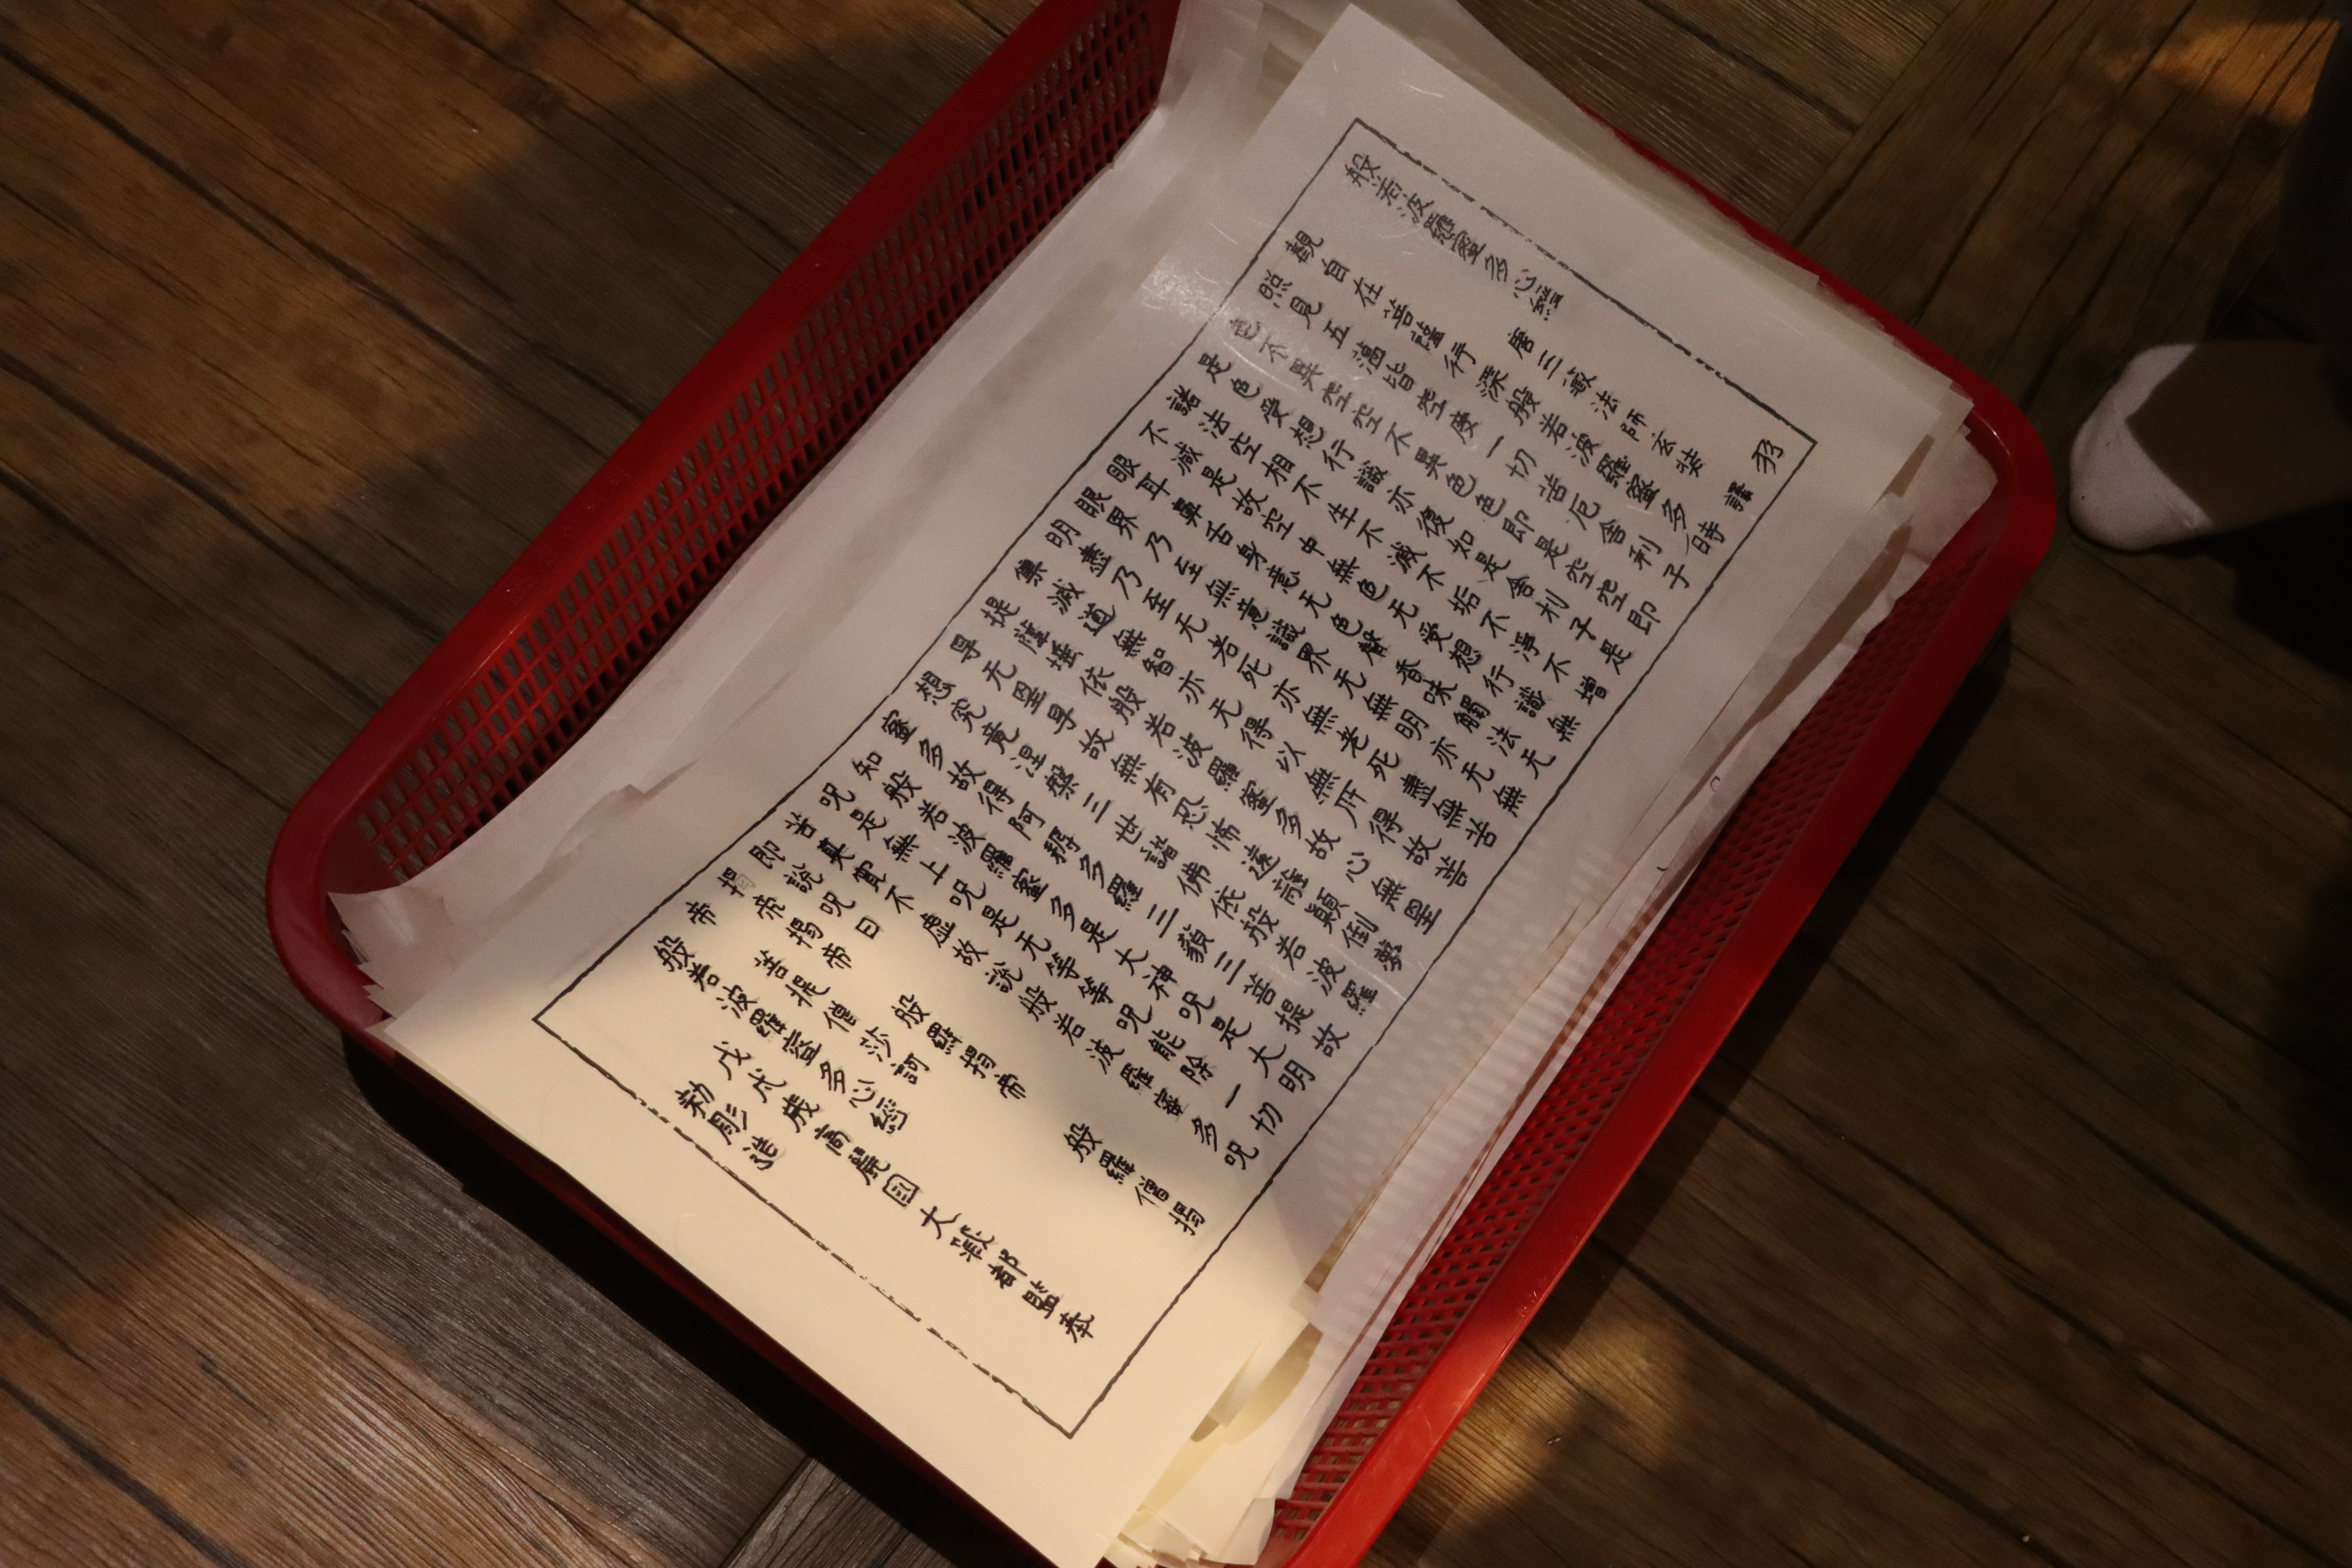 般若波羅蜜多心經 羽
唐三藏法師玄奘 譯
觀自在菩薩行深般若波羅蜜多時
照見五蘊皆空度一切苦厄舍利子
色不異空空不異色色即是空空即
是色受想行識亦復如是舍利子是
諸法空相不生不滅不垢不淨不增
不減是故空中無色无受想行識無
眼耳鼻舌身意无色聲香味觸法无
眼界乃至無意識界无無明亦无無
明盡乃至无若死亦無老死盡無苦
集滅道無智亦无得以無所得故菩
提薩埵依般若波羅蜜多故心無罣
㝵无罣㝵故無有恐怖遠離顚倒夢
想究竟涅槃三世諸佛依般若波羅
蜜多故得阿耨多羅三藐三菩提故
知般若波羅蜜多是大神呪是大明
呪是無上呪是无等等呪能除一切
苦真實不虛故說般若波羅蜜多呪
即說呪曰
揭帝揭帝 般羅揭帝 般羅僧揭
帝 菩提僧莎訶
般若波羅蜜多心經
戊戌歲高麗國大藏都監奉
勅彫造